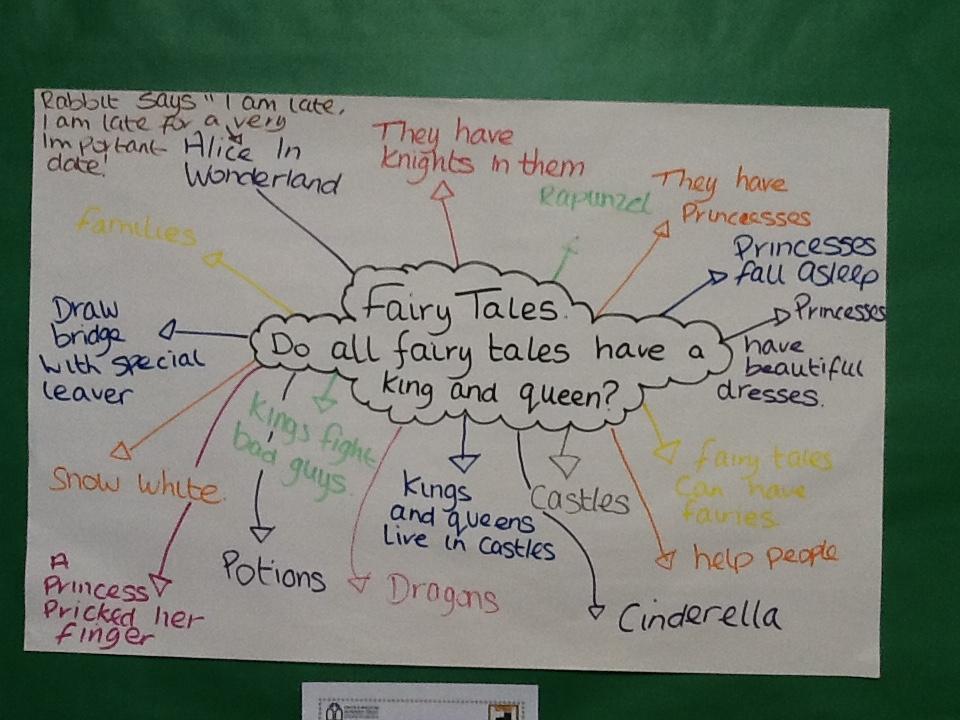 Rabbit says "I am late,
I am late for a very
Important
date!
Alice In
Wonderland
They have
knights in them
Rapunzel
They have
Princesses
Princesses
fall asleep
Princesses
have
beautiful
dresses.
families
Fairy Tales.
Do all fairy tales have a
king and queen?
Draw
bridge
with special
leaver
Snow white.
A
Princess
Pricked her
finger
Kings fight
bad guys.
Potions
Dragons
Kings
and queens
live in castles
Castles
Cinderella
help people
fairy tales
can have
fairies.